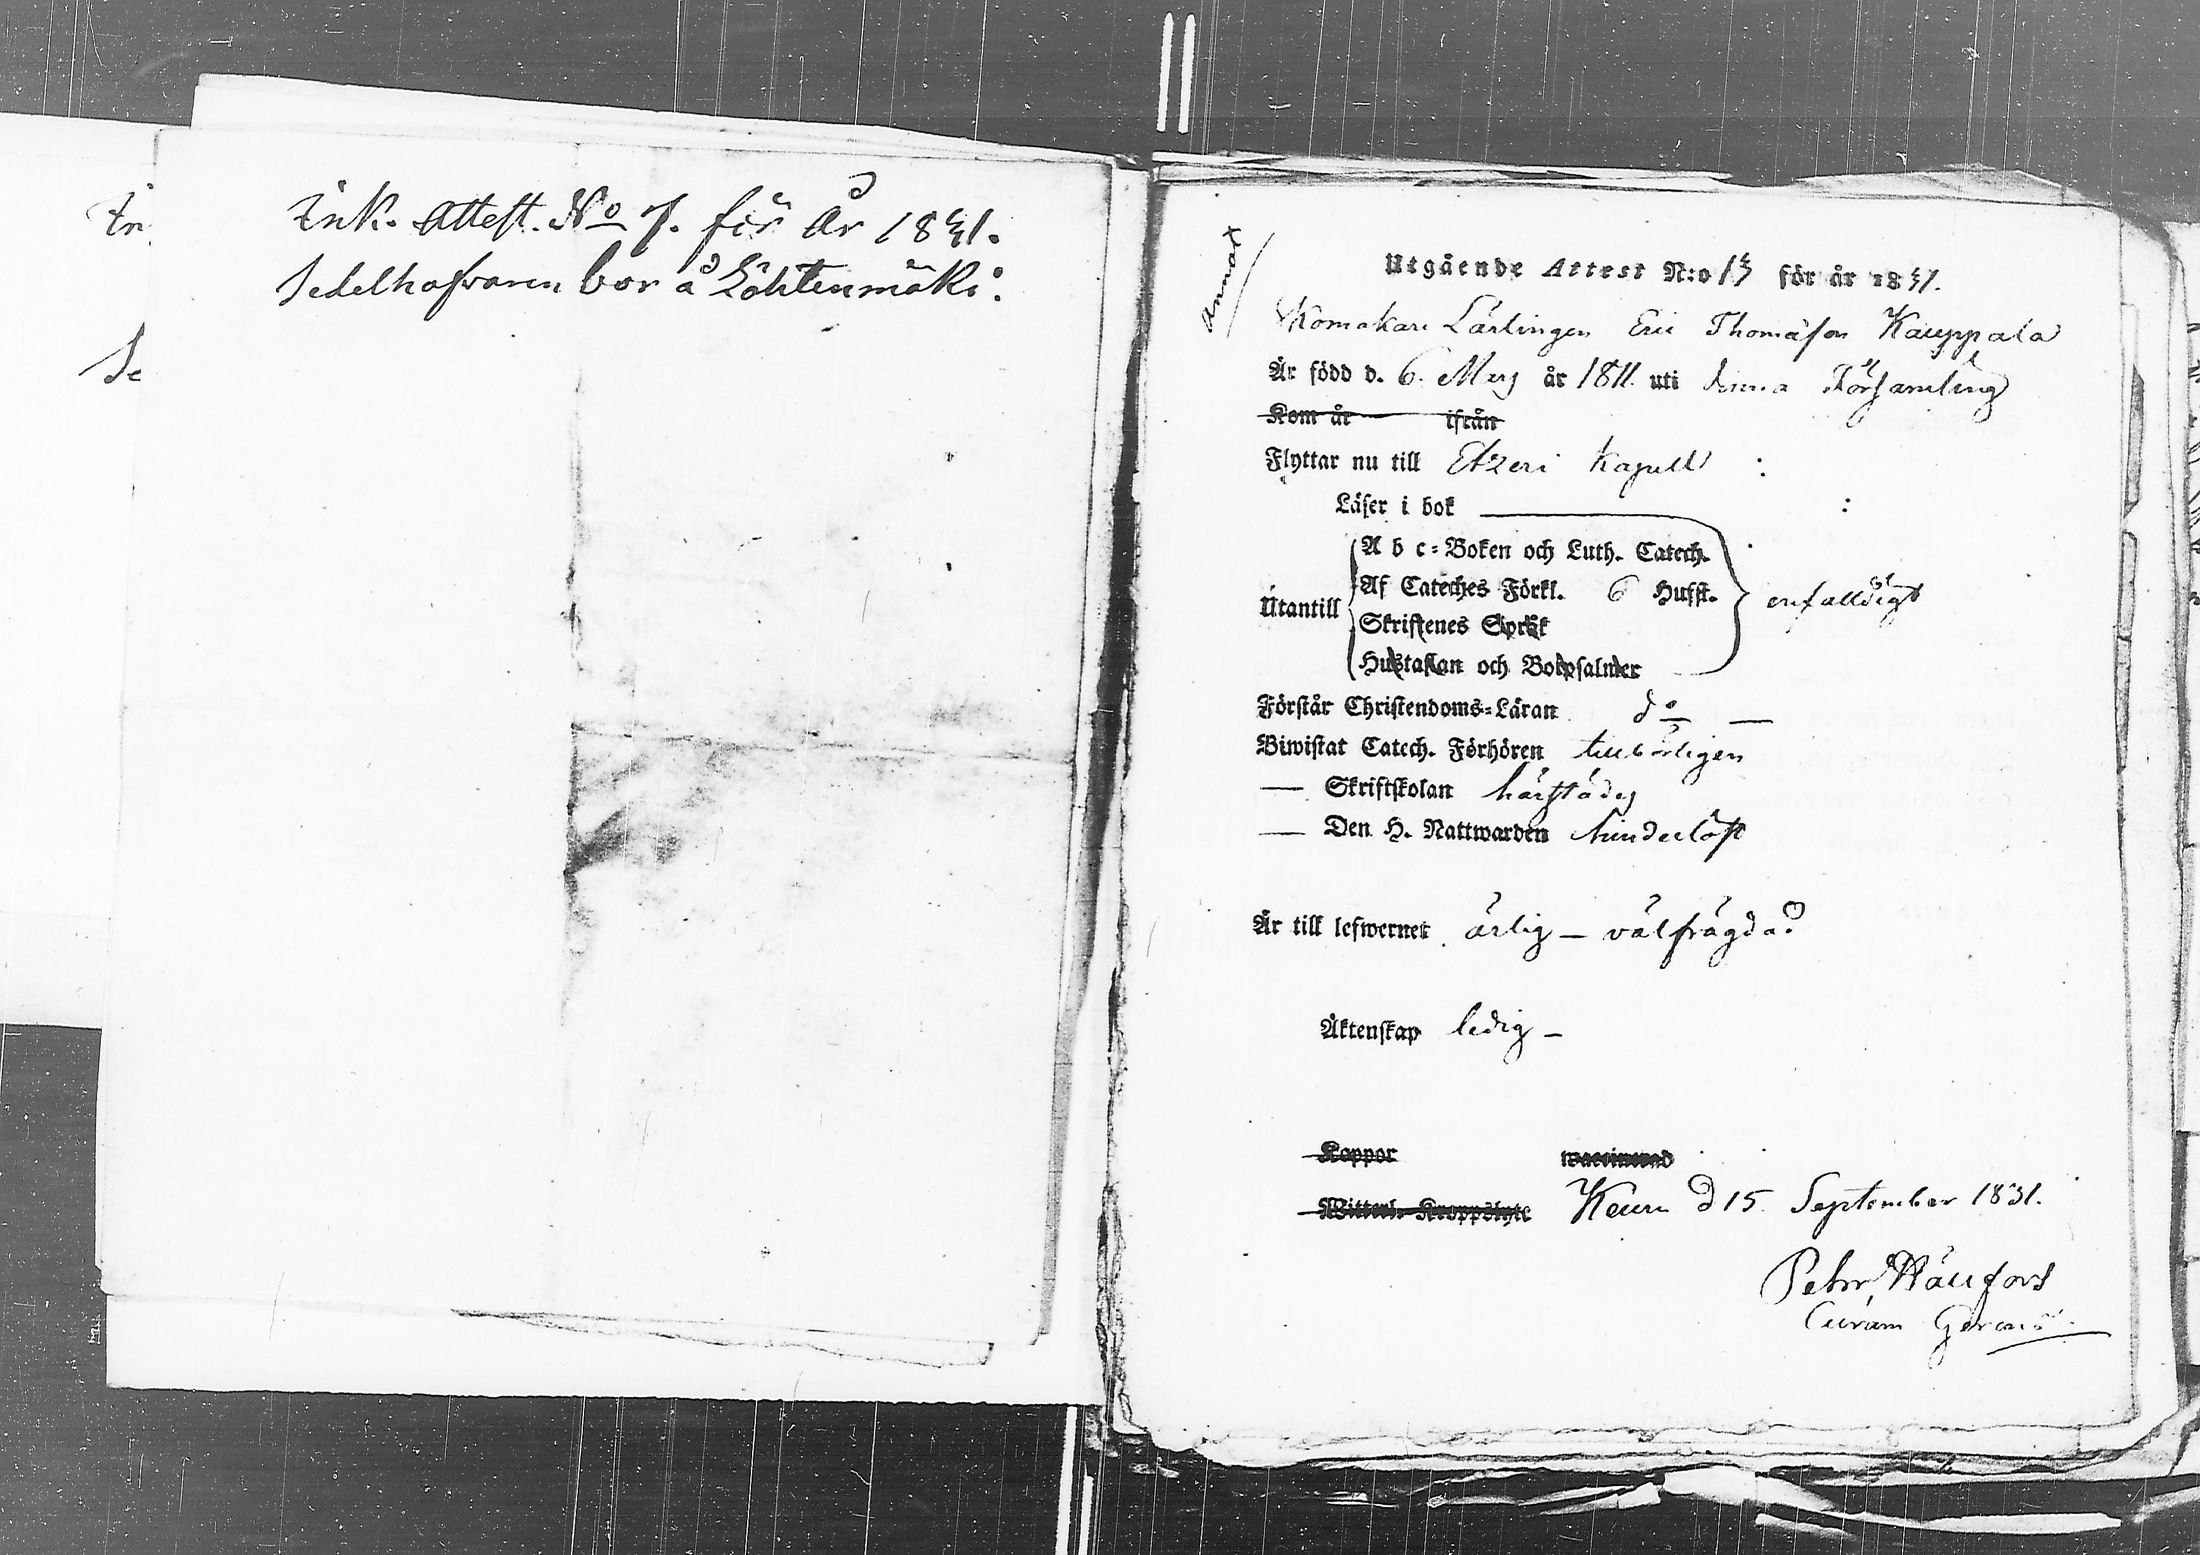 Ink. Attest. No 7. för År 1831.
Sedelhafvaren bor å Löhtenmäki.
In
Se
Annot
Utgående Attest N:o 13 för år 1831.
Skomakare Lärlingen Eric Thomasson Kauppala
Är född d. 6. Mars år 1811. uti denna Församling
Kom år ifrån
Flyttar nu till Etzeri Kapell
Läser i bok
Utantill
A b c-Boken och Luth. Catech.
Af Cateches Förkl. 6 Hufst.
Skriftenes Språk
Hustaflan och Botpsalmer
enfalldigt
Förstår Christendoms-Läran do
Biwistat Catech. Förhören tillbörligen
— Skriftskolan härstädes
— Den H. Nattwarden hinderlöst
Är till lefwernet ärlig — välfrägdad
Äktenskap ledig —
Koppor waccinerad
Witterl. Kroppslyte Keuru d 15 September 1831.
Petr
Curam Gerens